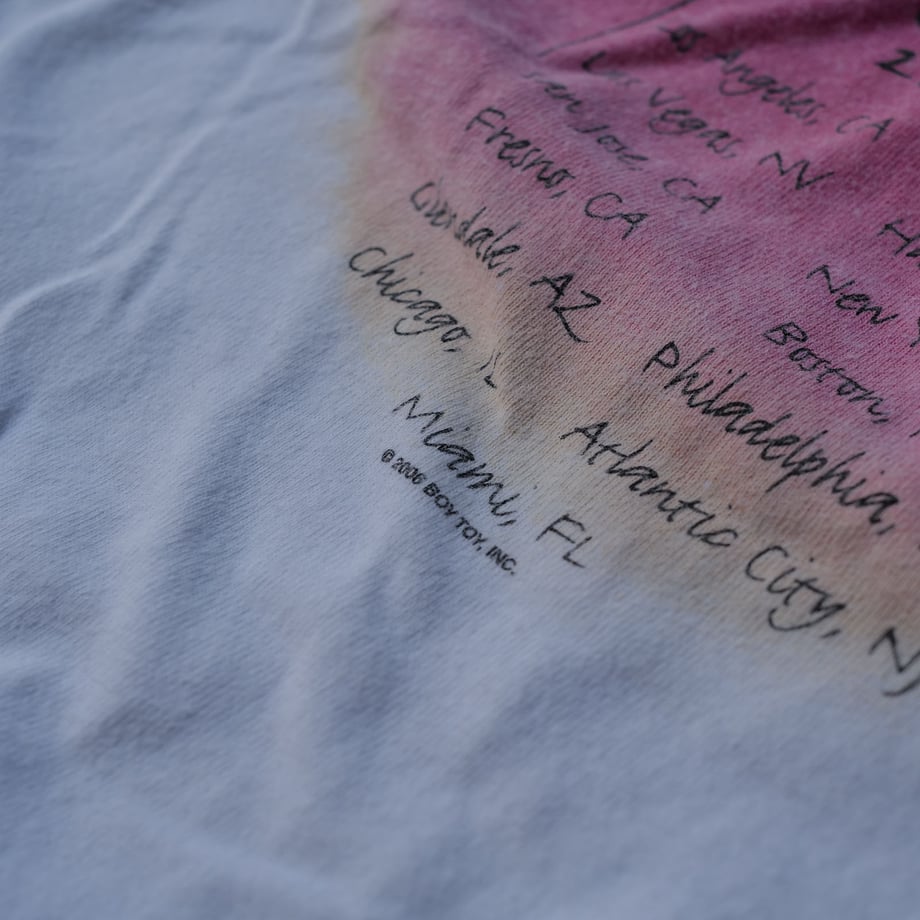 2
Angeles, CA
Las Vegas, NV
San Jose, CA
Fresno, CA
AZ
Chicago, IL
Miami, FL
© 2006 BOY TOY, INC.
New
Boston,
Philadelphia,
Atlantic City, NJ